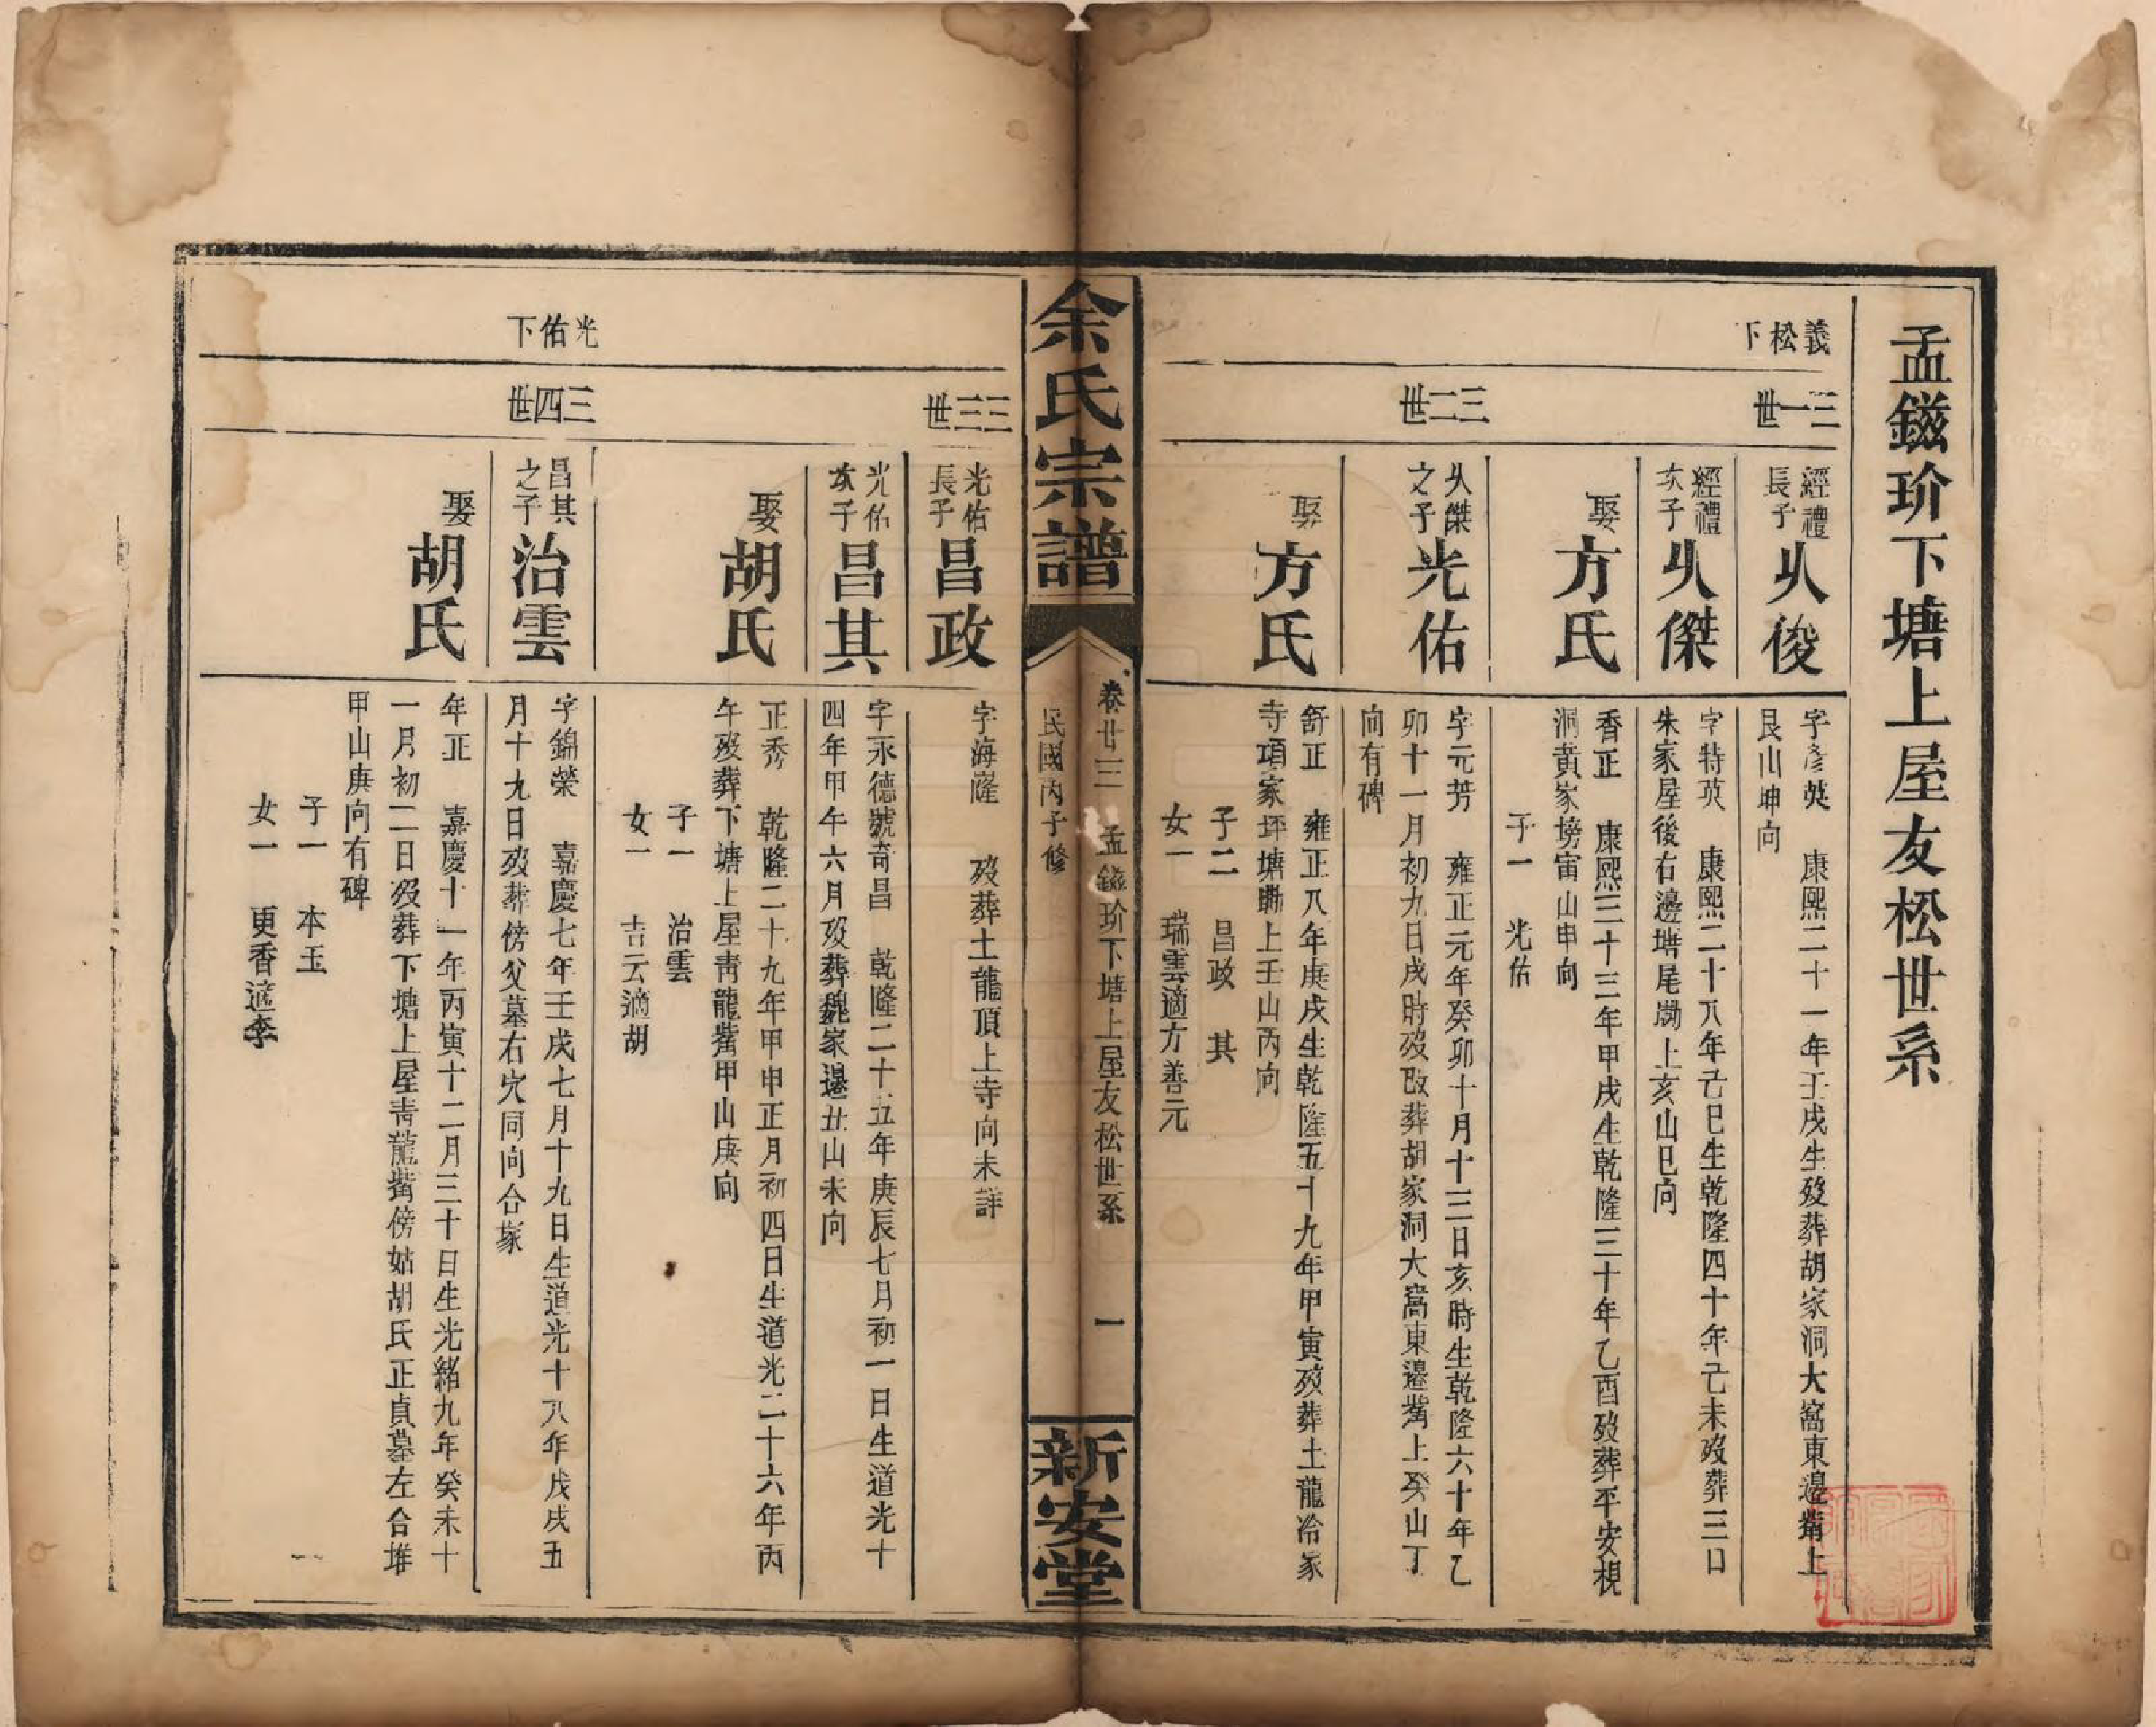 孟鎡玠下塘上屋友松世系
義松下
三一世
經禮長子
乆俊
字彥英　康熙二十一年壬戌生歿葬胡家洞大窩東邊觜上
艮山坤向
經禮次子
乆傑
字特英　康熙二十八年己巳生乾隆四十年己未歿葬三口
朱家屋後右邊塘尾塝上亥山巳向
娶
方氏
香正　康熙三十三年甲戌生乾隆三十年乙酉歿葬平安梘
洞黃家塝寅山申向
子一　光佑
三二世
乆傑之子
光佑
字元芳　雍正元年癸卯十月十三日亥時生乾隆六十年乙
卯十一月初九日戌時歿改葬胡家洞大窩東邊觜上癸山丁
向有碑
娶
方氏
舒正　雍正八年庚戌生乾隆五十九年甲寅歿葬土龍冷家
寺項家坪塘墈上壬山丙向
子二　昌政　其
女一　瑞雲適方善元
余氏宗譜
卷廿三　孟鎡玠下塘上屋友松世系　一
民國丙子修
新安堂
光佑下
三三世
光佑長子
昌政
字海隆　歿葬土龍頂上寺向未詳
光佑次子
昌其
字永德號奇昌　乾隆二十五年庚辰七月初一日生道光十
四年甲午六月歿葬魏家邊丑山未向
娶
胡氏
正秀　乾隆二十九年甲申正月初四日生道光二十六年丙
午歿葬下塘上屋靑龍觜甲山庚向
子一　治雲
女一　吉云適胡
三四世
昌其之子
治雲
字錦榮　嘉慶七年壬戌七月十九日生道光十八年戊戌五
月十九日歿葬傍父墓右穴同向合塚
娶
胡氏
年正　嘉慶十一年丙寅十二月三十日生光緒九年癸未十
一月初二日歿葬下塘上屋靑龍觜傍姑胡氏正貞墓左合堆
甲山庚向有碑
子一　本玉
女一　更香適李